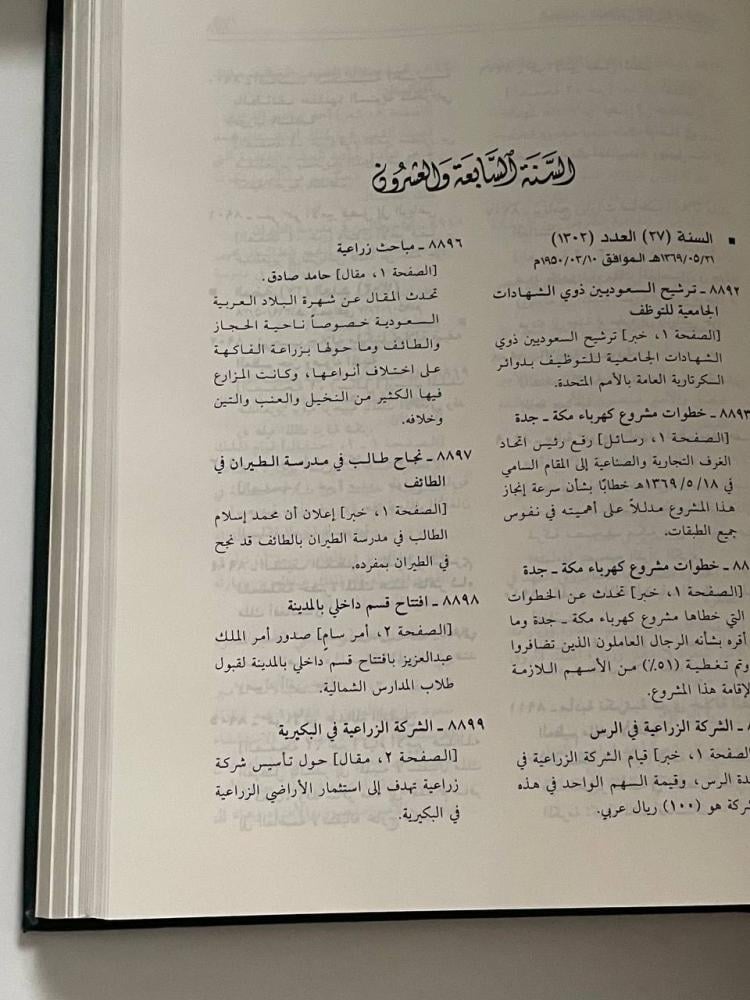 السَّنَة السَّابعَة وَالعشرُون
■ السنة (٢٧) العدد (١٣٠٢)
١٣٦٩/٠٥/٢١هـ الموافق ١٩٥٠/٠٣/١٠م
٨٨٩٢ ـ ترشيح السعوديين ذوي الشهادات
الجامعية للتوظف
[الصفحة ١، خبر] ترشيح السعوديين ذوي
الشهادات الجامعية للتوظيف بدوائر
السكرتارية العامة بالأمم المتحدة.
٨٨٩٣ ـ خطوات مشروع كهرباء مكة ـ جدة
[الصفحة ١، رسائل] رفع رئيس اتحاد
الغرف التجارية والصناعية إلى المقام السامي
في ١٣٦٩/٥/١٨هـ خطابًا بشأن سرعة إنجاز
هذا المشروع مدللاً على أهميته في نفوس
جميع الطبقات.
٨٨ ـ خطوات مشروع كهرباء مكة ـ جدة
[الصفحة ١، خبر] تحدث عن الخطوات
التي خطاها مشروع كهرباء مكة ـ جدة وما
أقره بشأنه الرجال العاملون الذين تضافروا
وتم تغطية (٥١٪) من الأسهم اللازمة
لإقامة هذا المشروع.
ـ الشركة الزراعية في الرس
الصفحة ١، خبر] قيام الشركة الزراعية في
دة الرس، وقيمة السهم الواحد في هذه
شركة هو (١٠٠) ريال عربي.
٨٨٩٦ ـ مباحث زراعية
[الصفحة ١، مقال] حامد صادق.
تحدث المقال عن شهرة البلاد العربية
السعودية خصوصاً ناحية الحجاز
والطائف وما حولها بزراعة الفاكهة
على اختلاف أنواعها، وكانت المزارع
فيها الكثير من النخيل والعنب والتين
وخلافه.
٨٨٩٧ ـ نجاح طالب في مدرسة الطيران في
الطائف
[الصفحة ١، خبر] إعلان أن محمد إسلام
الطالب في مدرسة الطيران بالطائف قد نجح
في الطيران بمفرده.
٨٨٩٨ ـ افتتاح قسم داخلي بالمدينة
[الصفحة ٢، أمر سامٍ] صدور أمر الملك
عبدالعزيز بافتتاح قسم داخلي بالمدينة لقبول
طلاب المدارس الشمالية.
٨٨٩٩ ـ الشركة الزراعية في البكيرية
[الصفحة ٢، مقال] حول تأسيس شركة
زراعية تهدف إلى استثمار الأراضي الزراعية
في البكيرية.